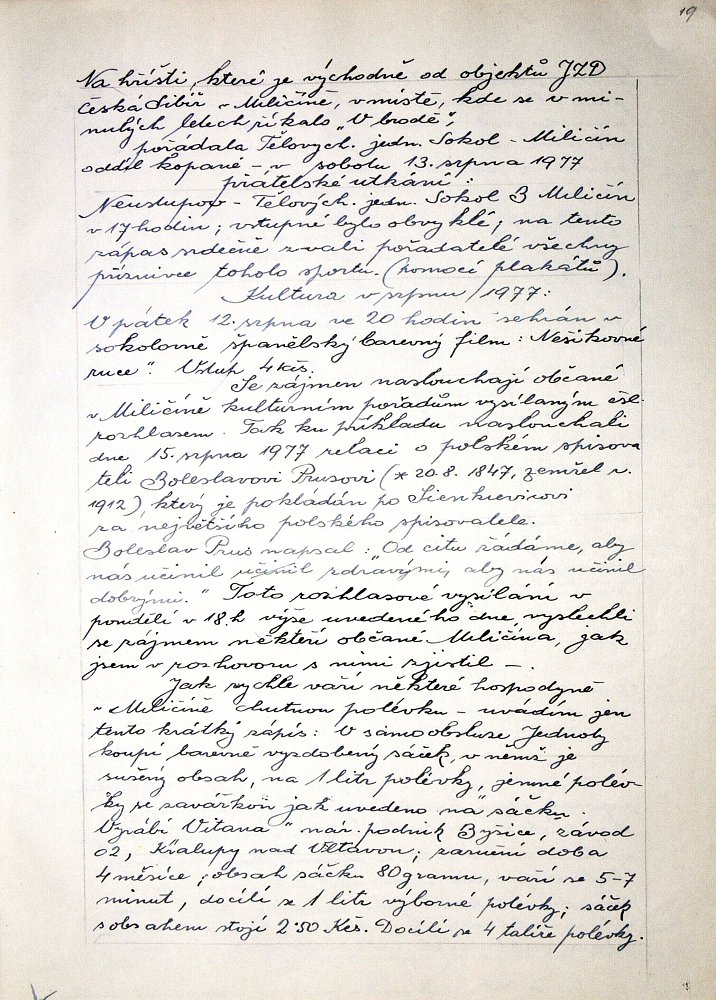 19
Na hřišti, které je východně od objektů JZD
Česká Sibiř v Miličíně, v místě, kde se v mi-
nulých letech říkalo "V brodě",
pořádala Tělových. jedn. Sokol - Miličín
oddíl kopané - v sobotu 13. srpna 1977
přátelské utkání:
Neustupov - Tělových. jedn. Sokol B Miličín
v 17 hodin; vstupné bylo obvyklé; na tento
zápas srdečně zvali pořadatelé všechny
příznivce tohoto sportu. (pomocí plakátů).
Kultura v srpnu 1977:
V pátek 12. srpna ve 20 hodin sehrán v
sokolovně španělský barevný film: Nešikovné
ruce". Vstup 4 kčs.
Se zájmem naslouchají občané
v Miličíně kulturním pořadům vysílaným čsl.
rozhlasem. Tak ku příkladu naslouchali
dne 15. srpna 1977 relaci o polském spisova
teli Boleslavovi Prusovi (* 20.8. 1847, zemřel r.
1912), který je pokládán po Sienkievicovi
za největšího polského spisovatele.
Boleslav Prus napsal: "Od citu žádáme, aby
nás učinil učinil zdravými, aby nás učinil
dobrými." Toto rozhlasové vysílání v
pondělí v 18 h výše uvedeného dne, vyslechli
se zájmem někteří občané Miličína, jak
jsem v rozhovoru s nimi zjistil -.
Jak rychle vaří některé hospodyně
v Miličíně chutnou polévku - uvádím jen
tento krátký zápis: V samoobsluze Jednoty
koupí barevně vyzdobený sáček, v němž je
sušený obsah, na 1 litr polévky, jemné polév-
ky se zavářkou jak uvedeno na sáčku.
Vyrábí Vitana" nár. podnik Byšice, závod
02, Kralupy nad Vltavou; záruční doba
4 měsíce; obsah sáčku 80 gramu, vaří se 5-7
minut, docílí se 1 litr výborné polévky; sáček
s obsahem stojí 2·50 Kčs. Docílí se 4 talíře polévky.